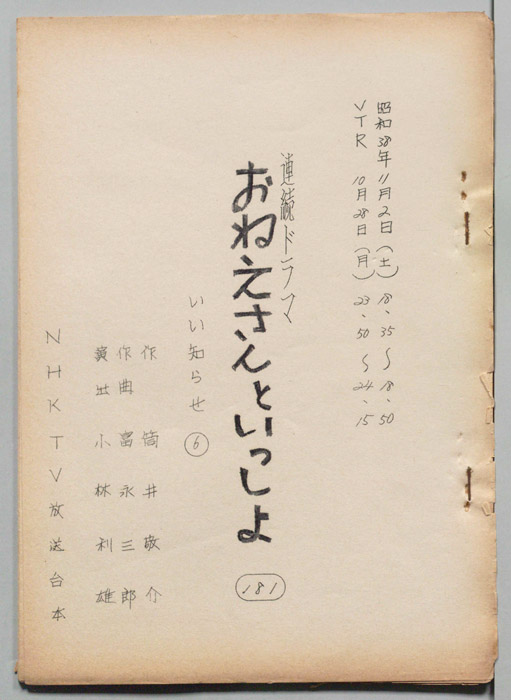 昭和38年11月2日(土) 18、35〜18、50
VTR 10月28日(月) 23、50〜24、15
連続ドラマ
おねえさんといっしょ
181
いい知らせ ⑥
作 筒井敬介
作曲 富永三郎
演出 小林利雄
NHKTV放送台本